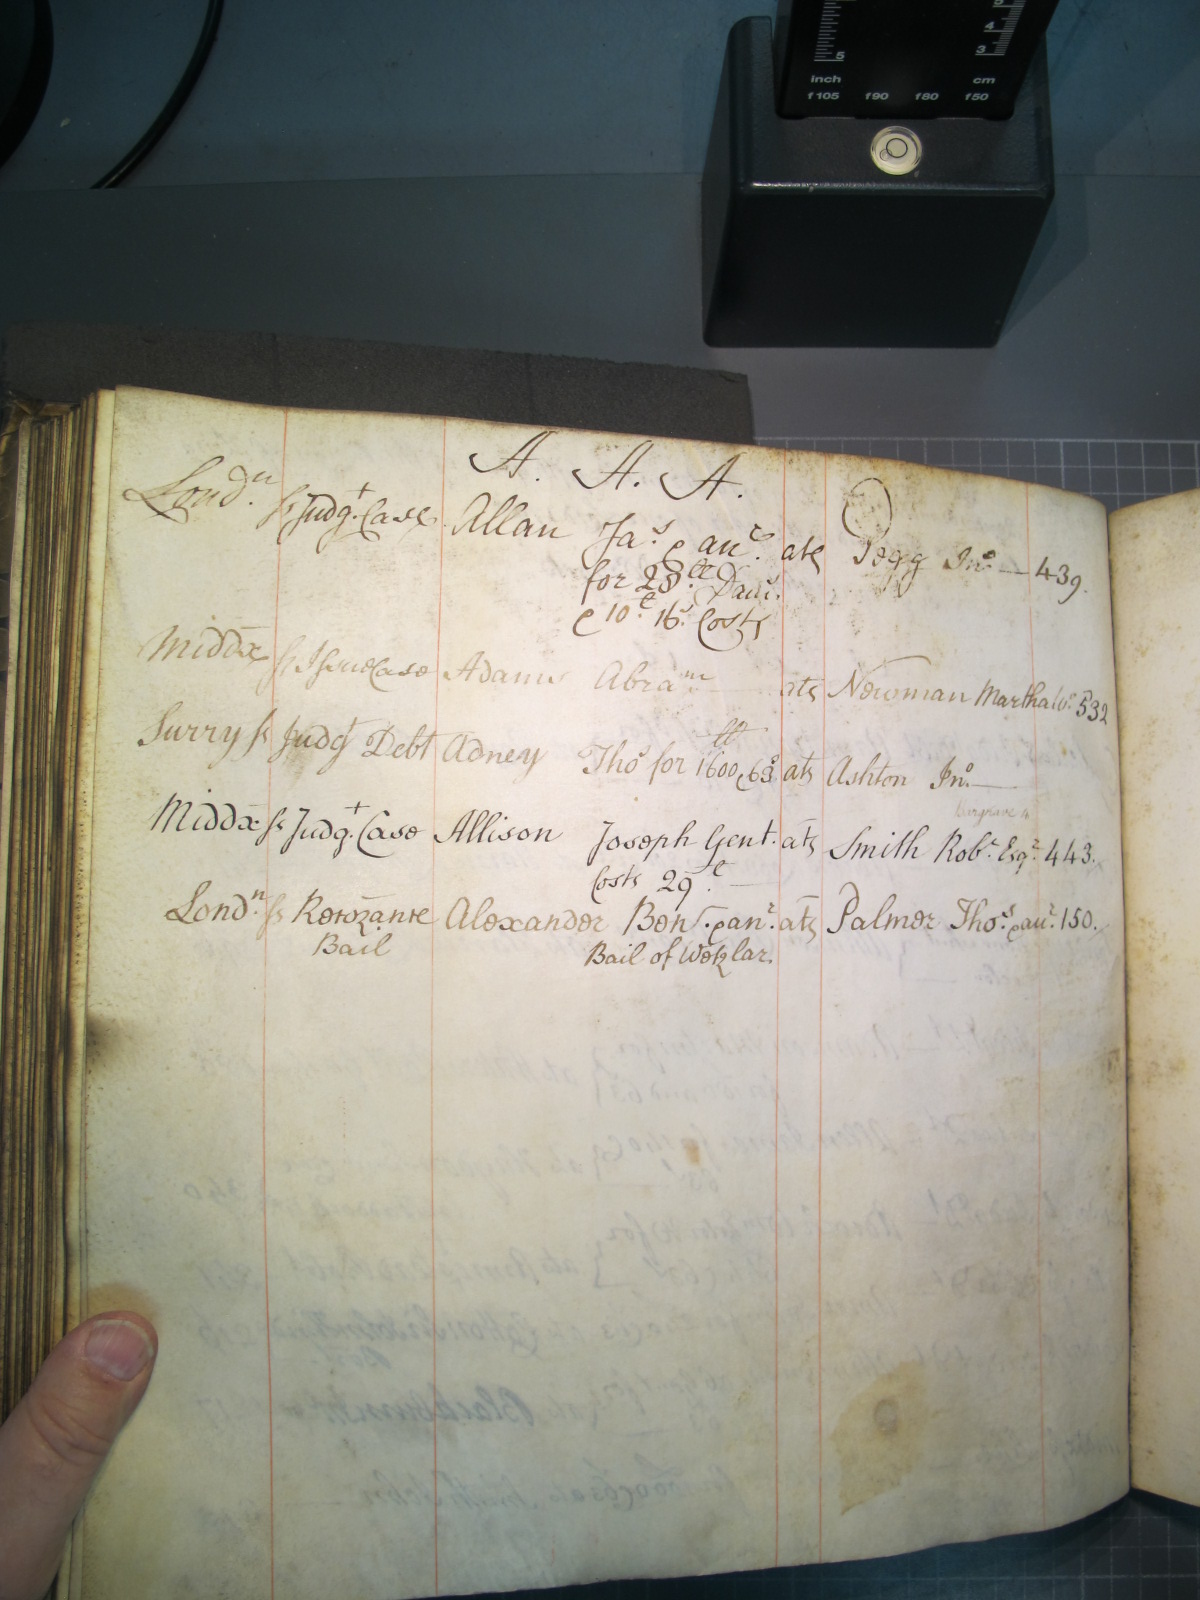 5
5
4
3
inch cm
f105 f90 f80 f50
A. A. A.
Lond.n ss Judg.t Case Allan Ja.s & an.r ats Pegg Jn.o — 439.
for 28.ll Dam.s
& 10.£ 16.s Costs
Middx ss Issue Case Adams Abra.m ats Newman Martha Wo. 532
Surry ss Judg.t Debt Adney Tho.s for 1600.ll & 63.s ats Ashton Jn.o —
Middx ss Judg.t Case Allison Joseph Gent. ats Smith Rob.t Esq.r 443.
Costs 29.£ —
Lond.n ss Recozance Alexander Ben. & an.r ats Palmer Tho.s & an.r 150.
Bail Bail of Wetzlar.